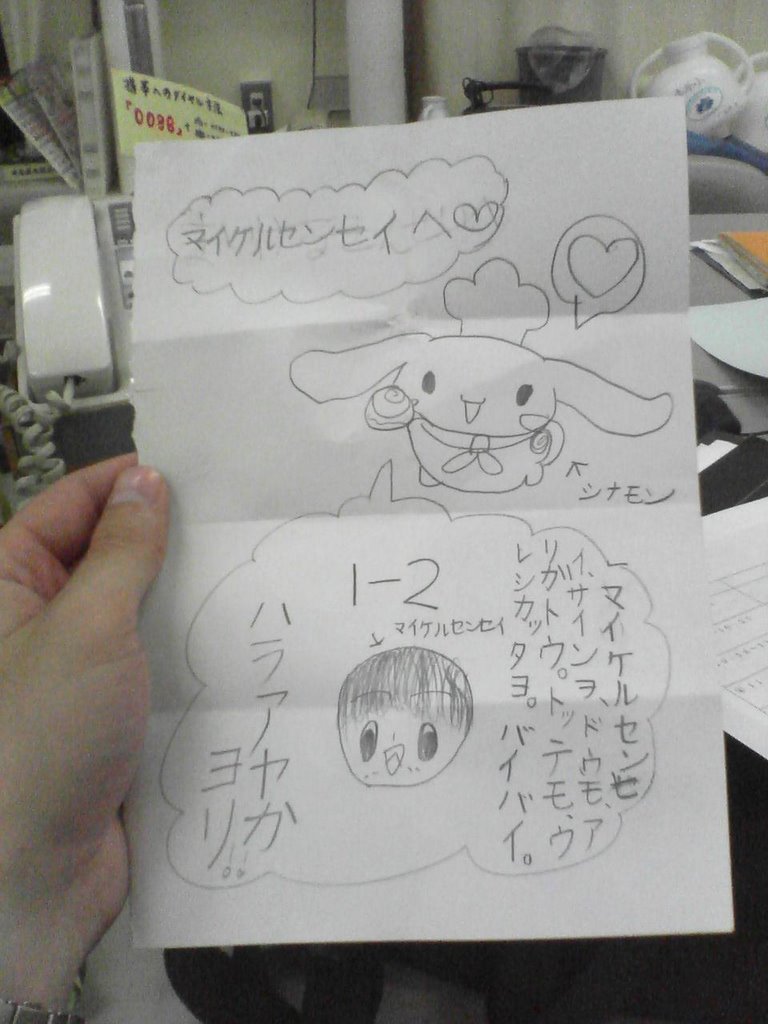 携帯へのダイヤル方法
「0088」+
マイケルセンセイへ♡
シナモン
1-2
マイケルセンセイ
マイケルセンセ
イ、サインヲ、ドウモ、ア
リガトウ。トッテモ、ウ
レシカッタヨ。バイバイ。
ハラアヤか
ヨリ!!